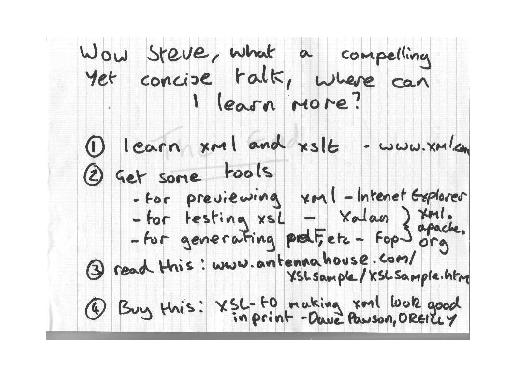 Wow Steve, what a compelling
Yet concise talk, where can
I learn more?
① learn xml and xslt - www.xml.com
② Get some tools
- for previewing xml - Intenet Explorer
- for testing xsl - Xalan } xml.
- for generating pdf, etc - Fop } apache.
org
③ read this: www.antennahouse.com/
XSLsample/XSLSample.htm
④ Buy this: XSL-FO making xml look good
in print - Dave Pawson, OREILLY